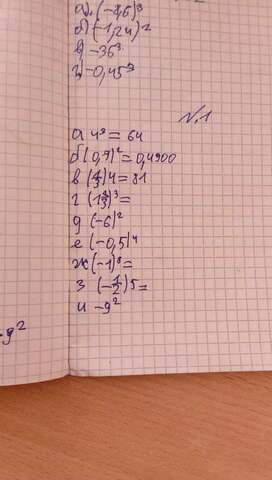 а) (-8,6)³
б) (-1,24)²
в) -36³
г) -0,45³
№1
а 4³ = 64
б (0,7)² = 0,4900
г (1⅔)³ =
д (-6)²
е (-0,5)⁴
ж (-1)⁸ =
з (-½)5 =
и -9²
-9²